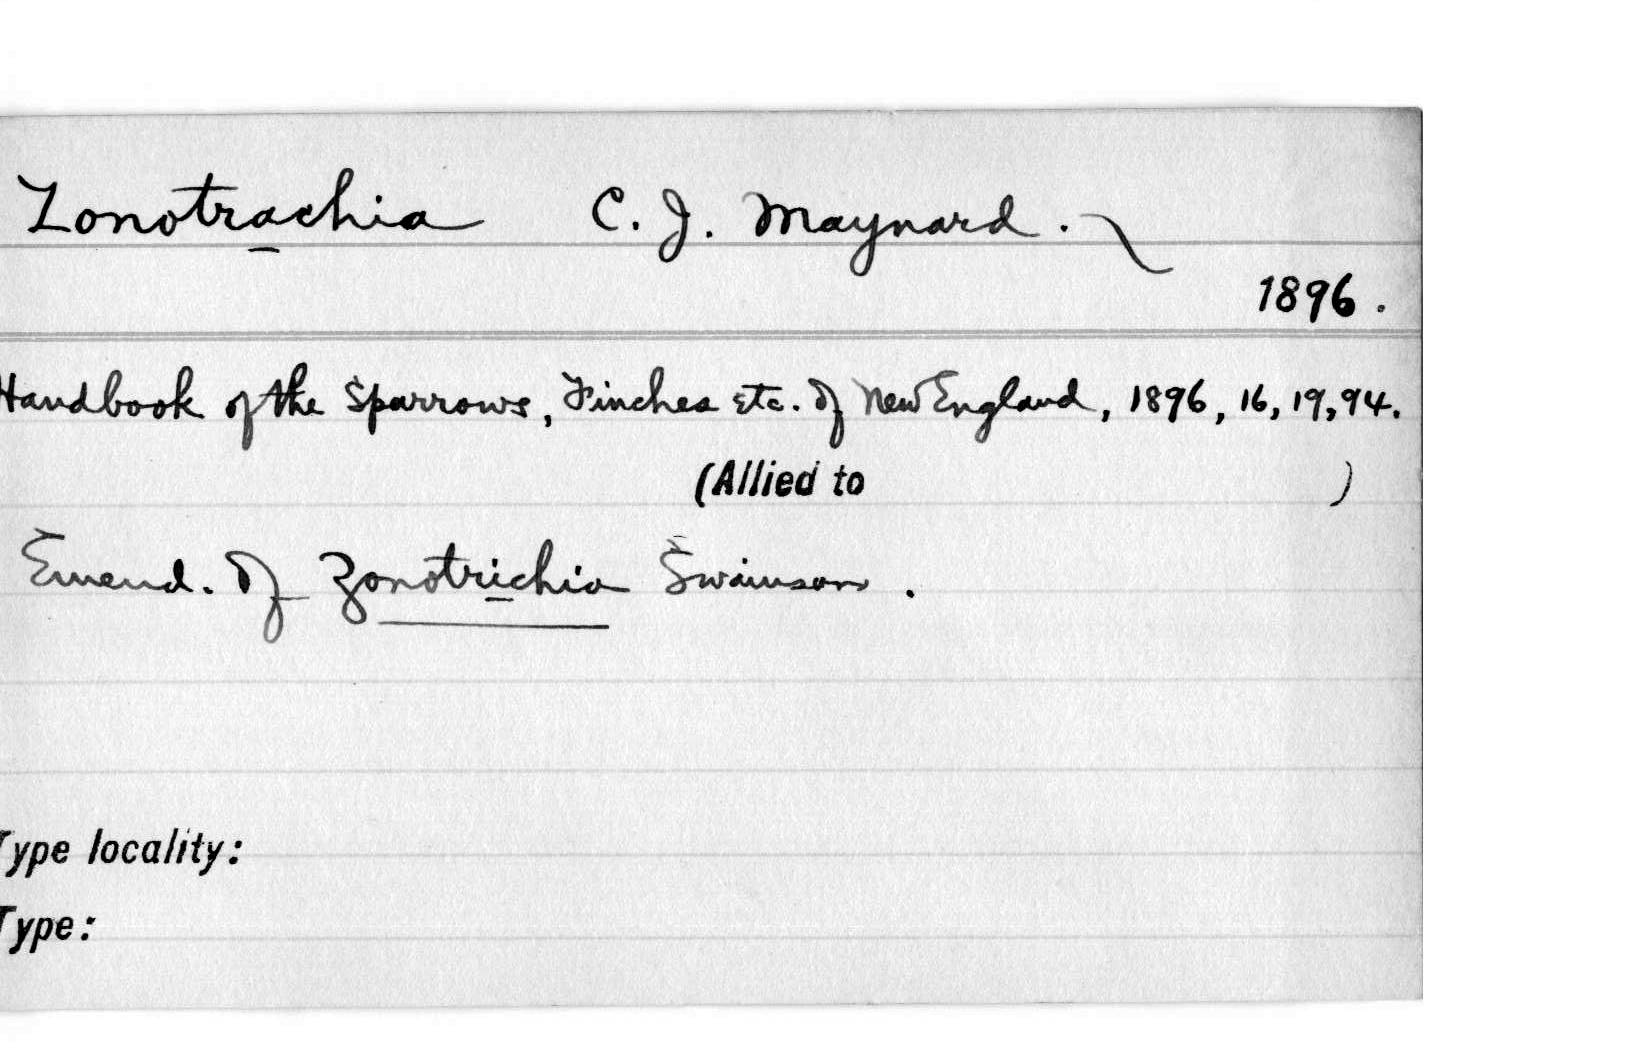 Zonotrachia C. J. Maynard.
1896.
Handbook of the Sparrows, Finches etc. of New England, 1896, 16, 19, 94.
(Allied to )
Emend. of Zonotrichia Swainson.
Type locality:
Type: